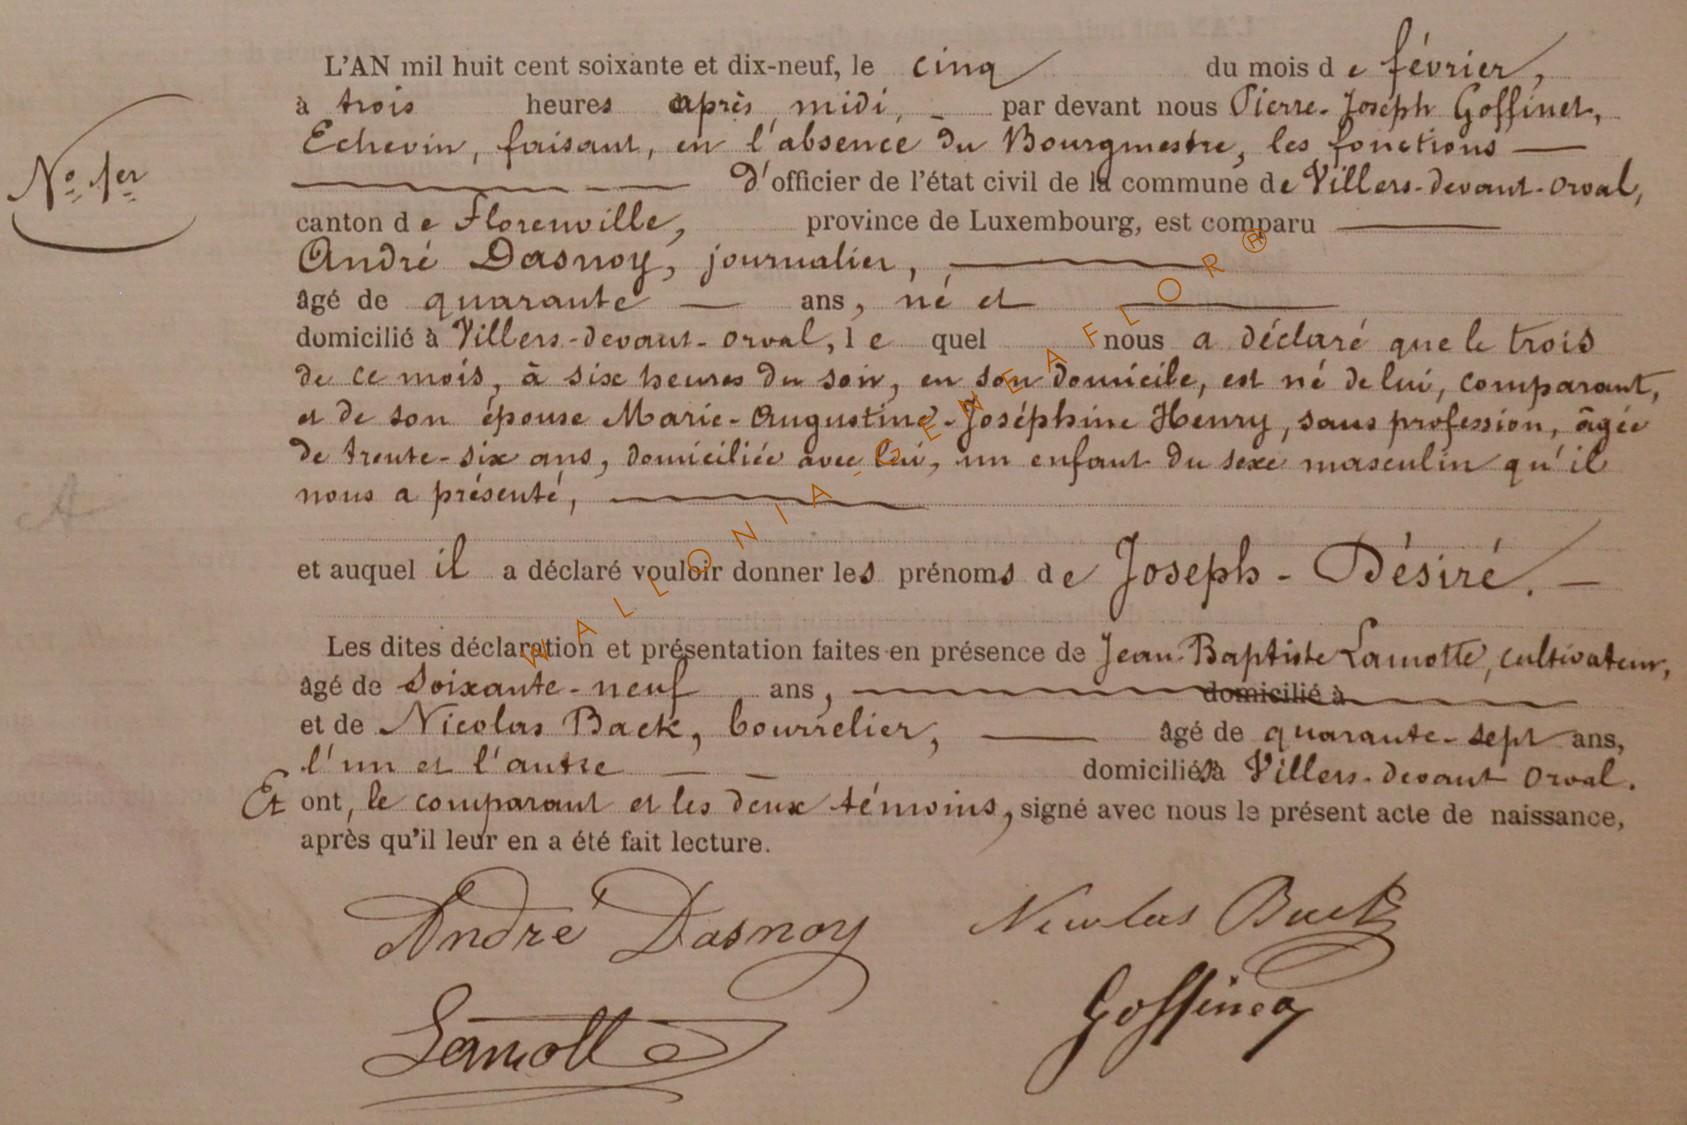 L'AN mil huit cent soixante et dix-neuf, le cinq du mois de février,
à trois heures après midi, par devant nous Pierre-Joseph Goffinet,
Echevin, faisant, en l'absence du Bourgmestre, les fonctions
N° 1er
d'officier de l'état civil de la commune de Villers-devant-Orval,
canton de Florenville, province de Luxembourg, est comparu
André Dasnoy, journalier,
âgé de quarante ans, né et
domicilié à Villers-devant-Orval, lequel nous a déclaré que le trois
de ce mois, à six heures du soir, en son domicile, est né de lui, comparant,
et de son épouse Marie-Augustine-Joséphine Henry, sans profession, âgée
de trente-six ans, domiciliée avec lui, un enfant du sexe masculin qu'il
nous a présenté,
A
et auquel il a déclaré vouloir donner les prénoms de Joseph-Désiré.
Les dites déclaration et présentation faites en présence de Jean-Baptiste Lamotte, cultivateur,
âgé de soixante-neuf ans, domicilié à
et de Nicolas Back, bourrelier, âgé de quarante-sept ans,
l'un et l'autre domiciliés à Villers-devant Orval.
Et ont, le comparant et les deux témoins, signé avec nous le présent acte de naissance,
après qu'il leur en a été fait lecture.
André Dasnoy Nicolas Back
Lamotte Goffinet
WALLONIA-GENEAFLOR®